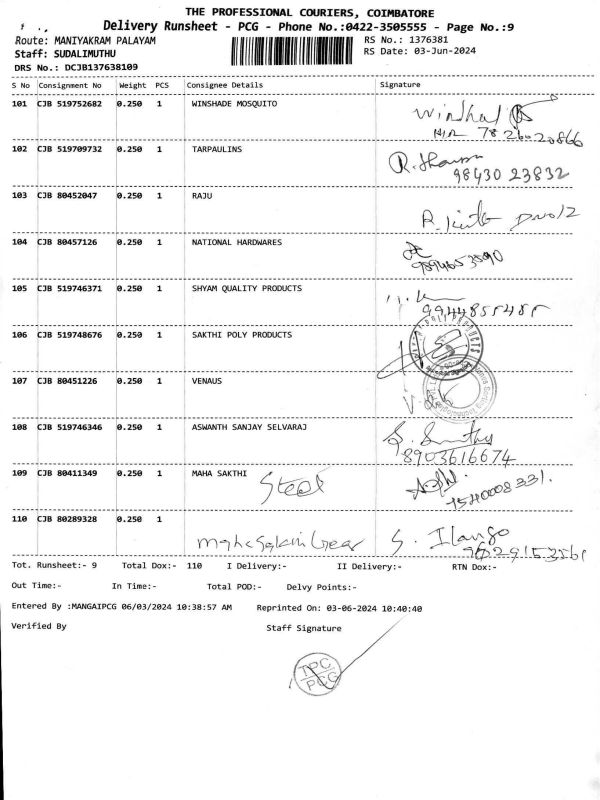 THE PROFESSIONAL COURIERS, COIMBATORE
Delivery Runsheet - PCG - Phone No.:0422-3505555 - Page No.:9
Route: MANIYAKRAM PALAYAM RS No.: 1376381
Staff: SUDALIMUTHU RS Date: 03-Jun-2024
DRS No.: DCJB137638109
S No Consignment No Weight PCS Consignee Details Signature
101 CJB 519752682 0.250 1 WINSHADE MOSQUITO
102 CJB 519709732 0.250 1 TARPAULINS
98430 23832
103 CJB 80452047 0.250 1 RAJU
104 CJB 80457126 0.250 1 NATIONAL HARDWARES
105 CJB 519746371 0.250 1 SHYAM QUALITY PRODUCTS
9944855485
106 CJB 519748676 0.250 1 SAKTHI POLY PRODUCTS
107 CJB 80451226 0.250 1 VENAUS
108 CJB 519746346 0.250 1 ASWANTH SANJAY SELVARAJ
8903616674
109 CJB 80411349 0.250 1 MAHA SAKTHI
Steel
110 CJB 80289328 0.250 1
S. Ilango
Tot. Runsheet:- 9 Total Dox:- 110 I Delivery:- II Delivery:- RTN Dox:-
Out Time:- In Time:- Total POD:- Delvy Points:-
Entered By :MANGAIPCG 06/03/2024 10:38:57 AM Reprinted On: 03-06-2024 10:40:40
Verified By Staff Signature
TPC
PCG